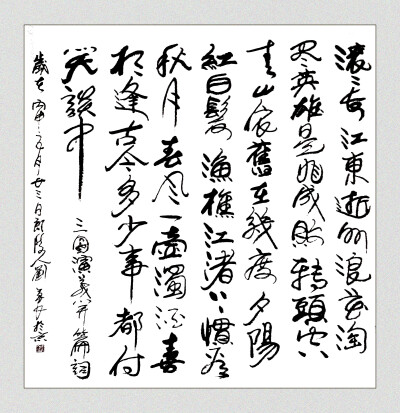 滚々長江東逝水浪花淘
尽英雄是非成敗轉頭空
青山依舊在幾度夕陽
紅白髮漁樵江渚上慣看
秋月春风一壺濁酒喜
相逢古今多少事都付
笑談中 三国演義开篇詞
歲在丙申月廿三日人劉於京